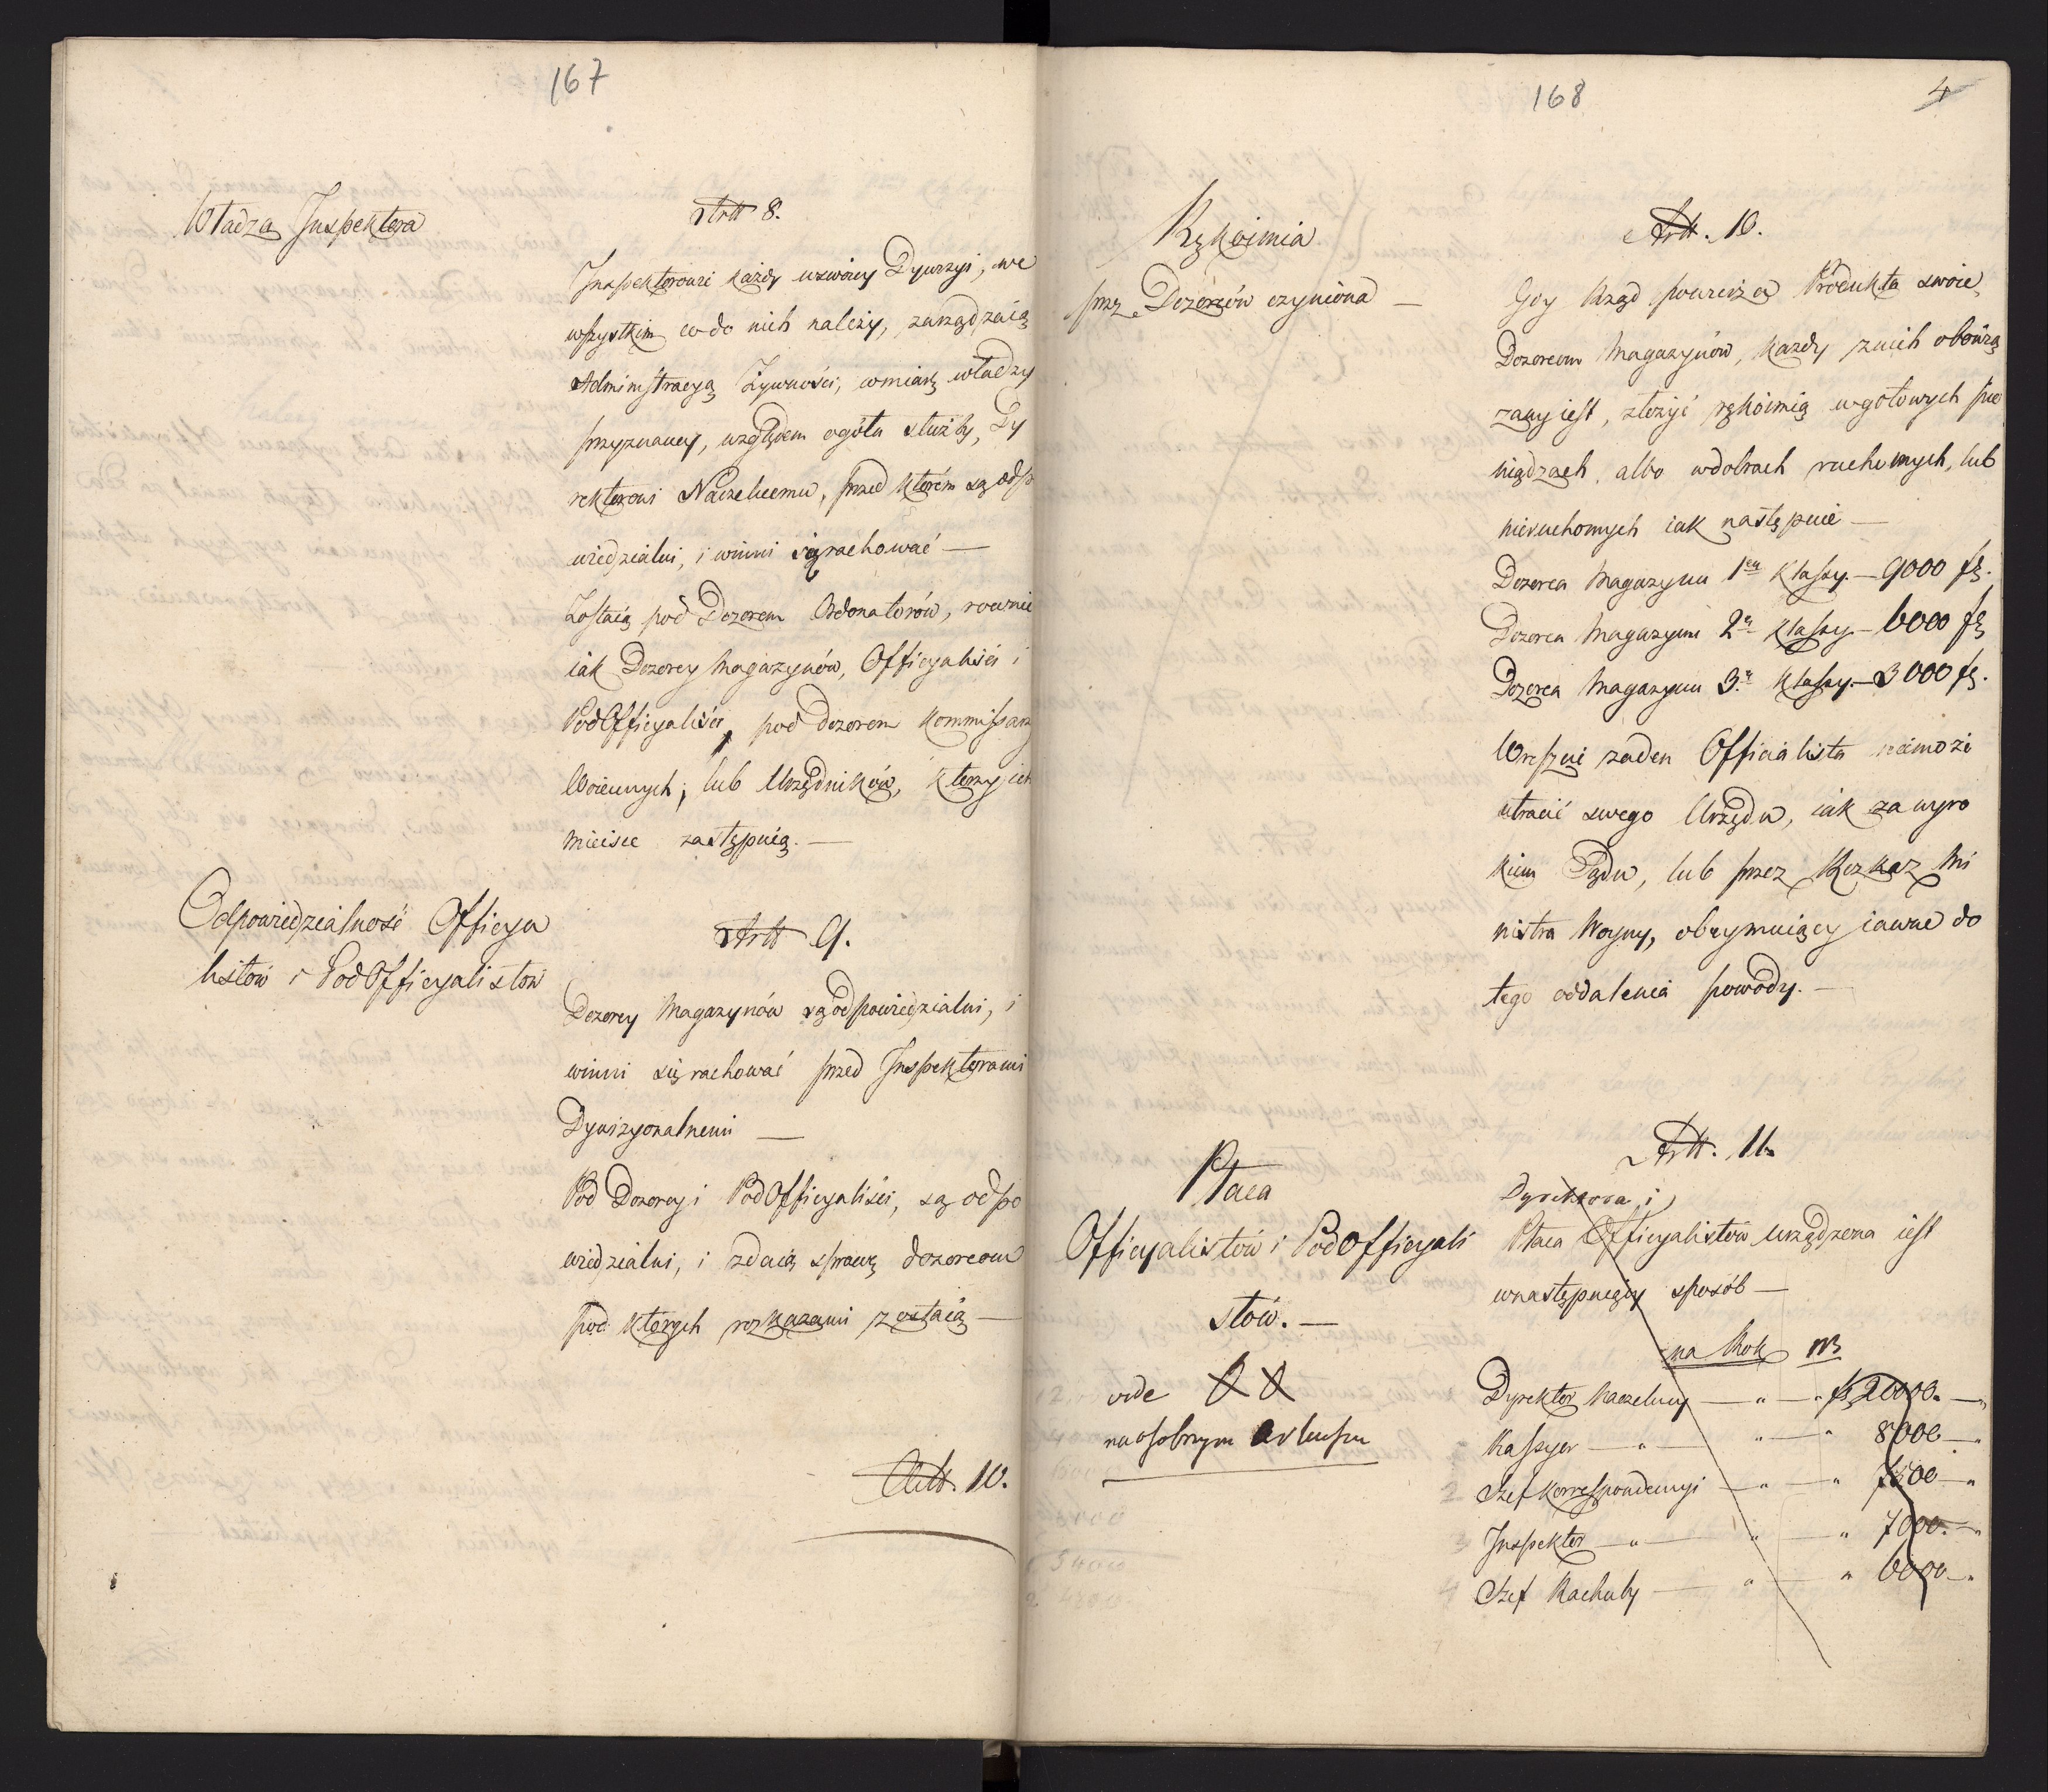 167
Władza Inspektora
Artt 8.
Inspektorowie każdy wswoiey Dywizyi, we
wszystkim co do nich należy, zarządzaią
Administracyą Żywności, wmiarę władzy
przyznaney, względem ogółu służby, Dy
rektorowi Naczelnemu, przed którem są odpo
wiedzialni, i winni się rachować —
Zostaią pod Dozorem Ordonatorów, rownie
iak Dozorcy Magazynów, Officyaliści i
PodOfficyaliści, pod dozorem Kommissarzy
Woiennych, lub Urzędników, ktorzy ich
mieisce zastępuią. —
Odpowiedzialność Officya
listów i PodOfficyalistow
Artt 9.
Dozorcy Magazynów są odpowiedzialni, i
winni się rachować przed Inspektorami
Dywizyonalnemi —
Pod Dozorcy i PodOfficyaliści, są odpo
wiedzialni, i zdaią sprawę dozorcom
pod ktorych rozkazami zostaią —
Artt. 10.
168
4
Rękoimia
przez Dozorców czyniona —
Artt. 10.
Gdy Rząd powierza Produkta swoie,
Dozorcom Magazynów, każdy znich obowią
zany iest, złożyć rękoimią wgotowych pie
niądzach, albo wdobrach ruchomych, lub
nieruchomych iak następuie —
Dozorca Magazynu 1ey Klassy — 9000 fl.
Dozorca Magazynu 2ey Klassy — 6000 fl.
Dozorca Magazynu 3.ey Klassy — 3000 fl.
Wreszcie żaden Officialista niemoże
utracić swego Urzędu, iak za wyro
kiem Sądu, lub przez Rozkaz Mi
nistra Woyny, obeymuiący iawne do
tego oddalenia powody. —
Płaca
Officyalistów i PodOfficyali
stów. —
vide
na osobnym Arkuszu
Artt. 11.
Dyrektora i
Płaca Officyalistów urządzona iest
wnastępuiący sposób —
na Rok
Dyrektor Naczelny — " — " fl. 20000. — "
Kassyer — " — " — " 8000 — "
Szef Korrespondencyi — " — " 7500 — "
Inspektor — " — " — " 7000. — "
Szef Rachuby — " — " 6000 — "